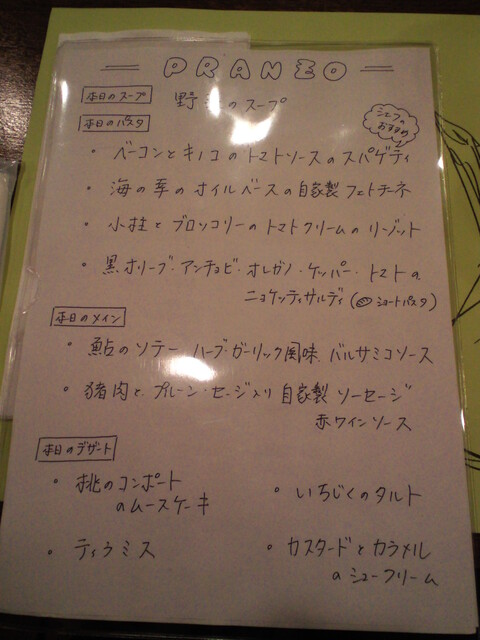 PRANZO
本日のスープ
野菜のスープ
本日のパスタ
シェフのおすすめ
・ベーコンとキノコのトマトソースのスパゲティ
・海の幸のオイルベースの自家製フェトチーネ
・小柱とブロッコリーのトマトクリームのリゾット
・黒オリーブ・アンチョビ・オレガノ・ケッパー・トマトの
ニョケッティサルディ(ショートパスタ)
本日のメイン
・鮎のソテー ハーブ・ガーリック風味 バルサミコソース
・猪肉とプルーン・セージ入り自家製ソーセージ
赤ワインソース
本日のデザート
・桃のコンポート
のムースケーキ
・いちじくのタルト
・ティラミス
・カスタードとカラメル
のシュークリーム